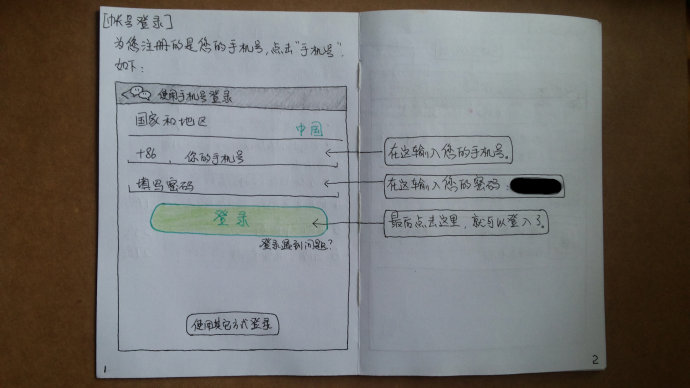 [帐号登录]
为您注册的是您的手机号,点击“手机号”.
如下:
使用手机号登录
国家和地区
中国
+86 , 你的手机号
填写密码
登录
登录遇到问题?
使用其它方式登录
1
在这输入您的手机号。
在这输入您的密码:
最后点击这里,就可以登入了。
2